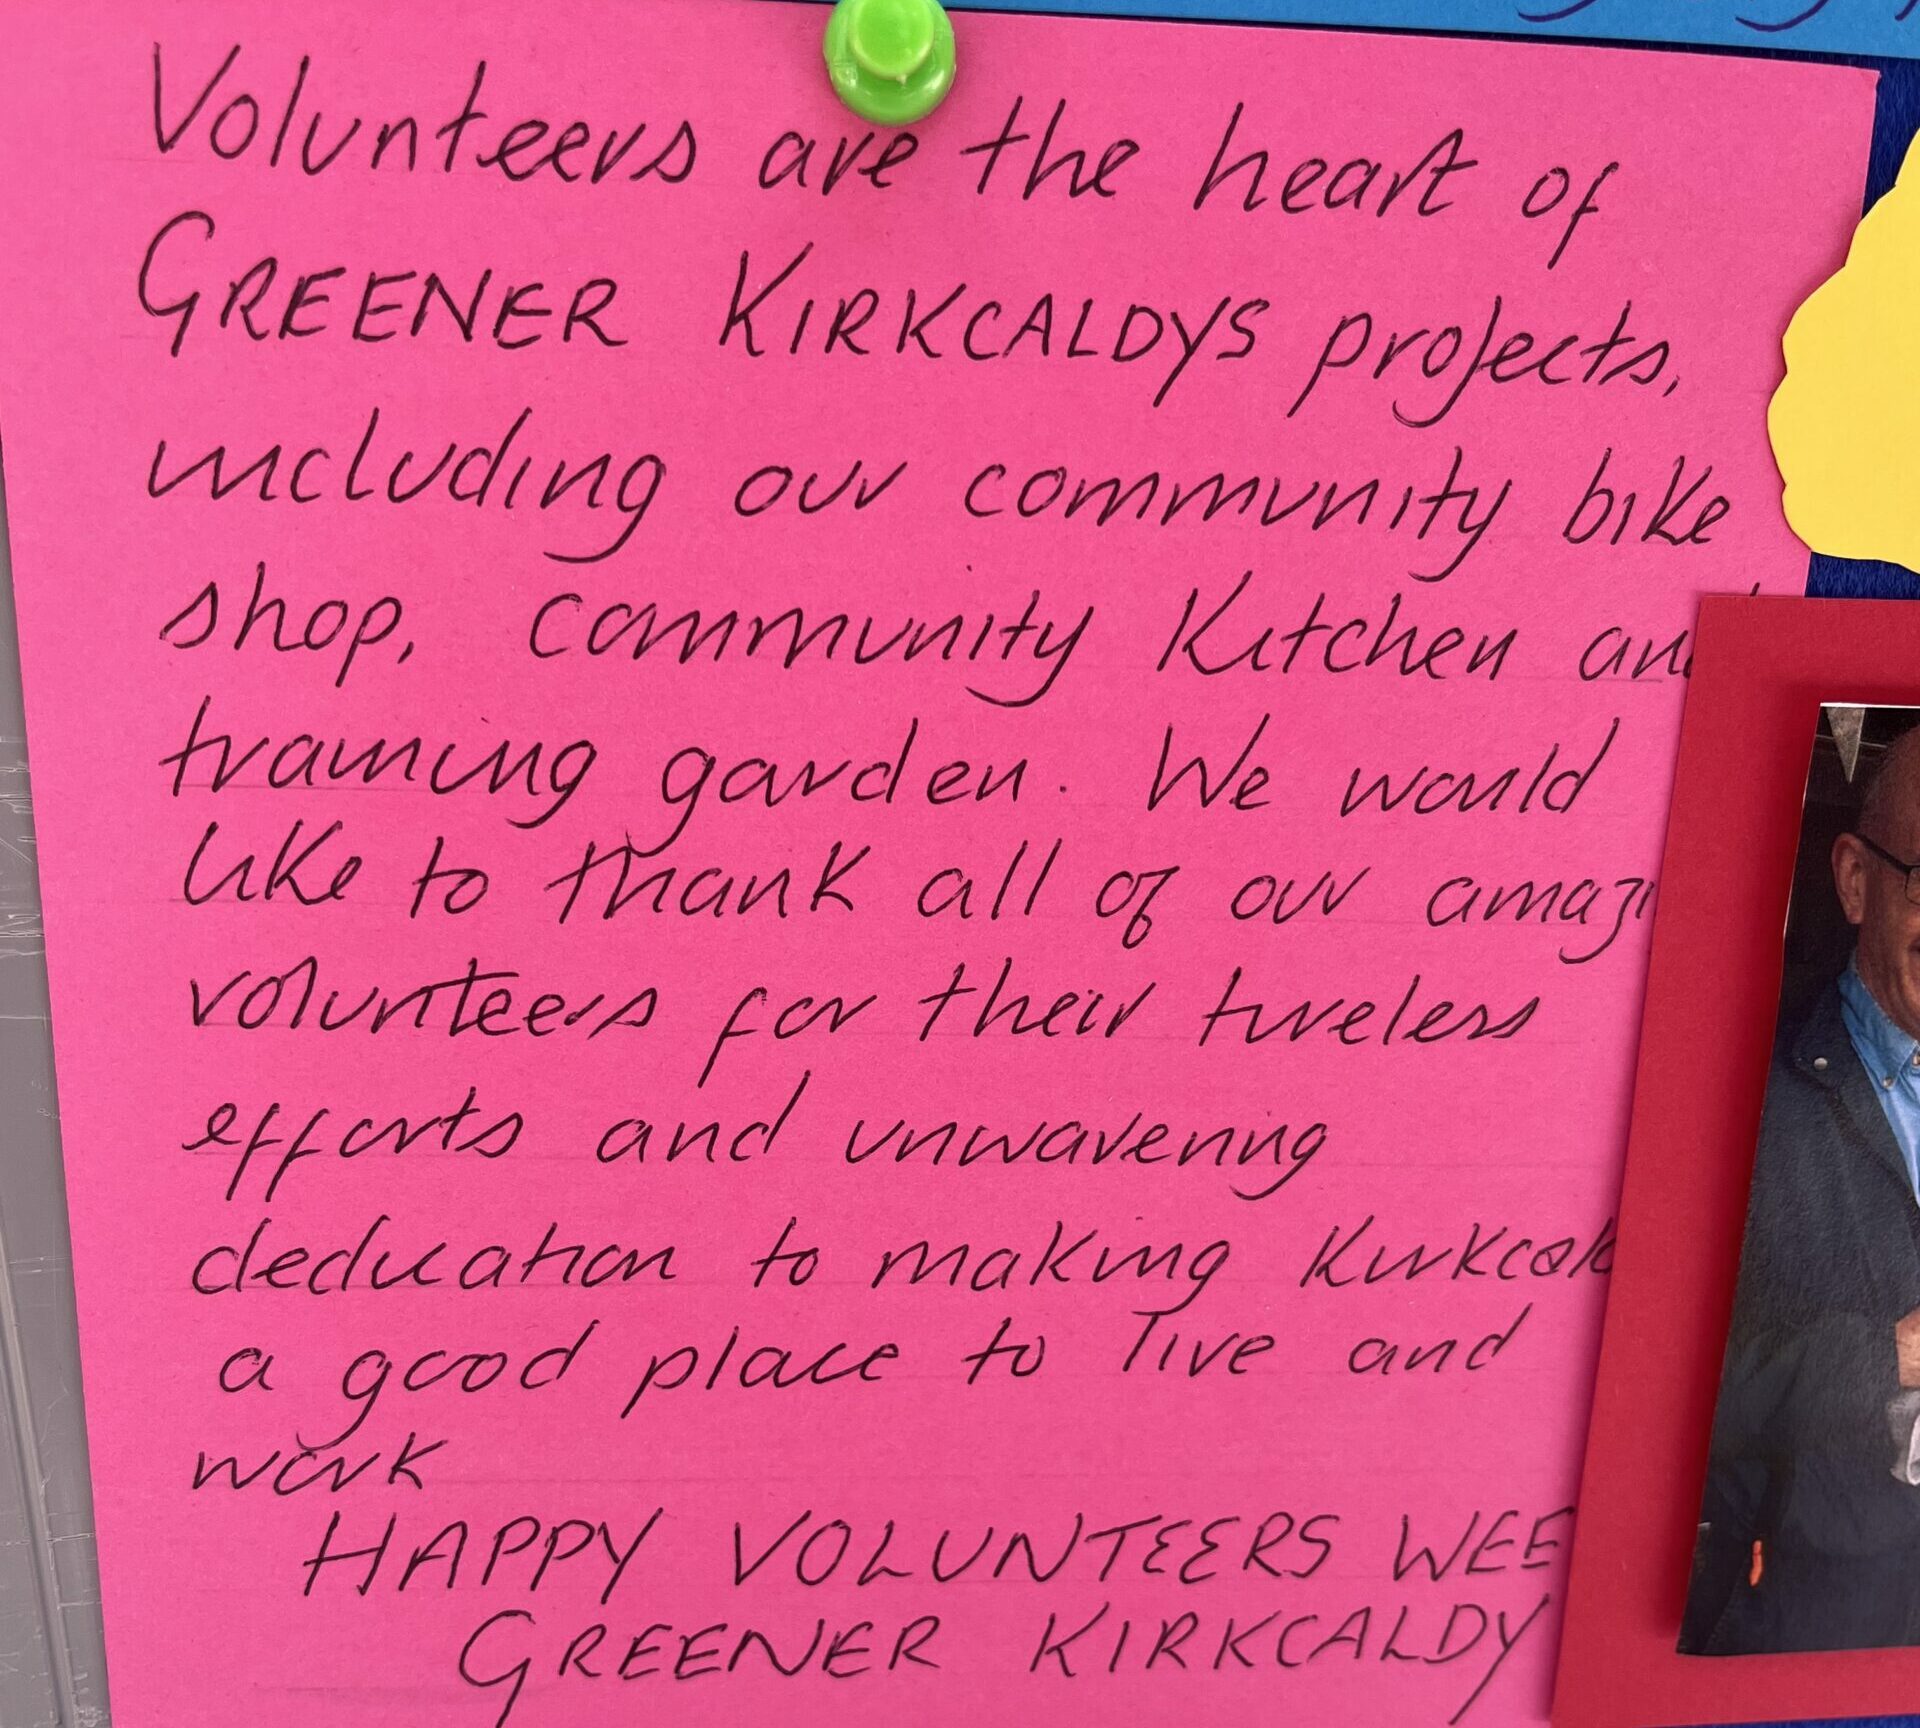 Volunteers are the heart of
GREENER KIRKCALDYS projects,
including our community bike
shop, community Kitchen and
training garden. We would
like to thank all of our amazi
volunteers for their tireless
efforts and unwavering
dedication to making Kirkcald
a good place to live and
work
HAPPY VOLUNTEERS WEE
GREENER KIRKCALDY